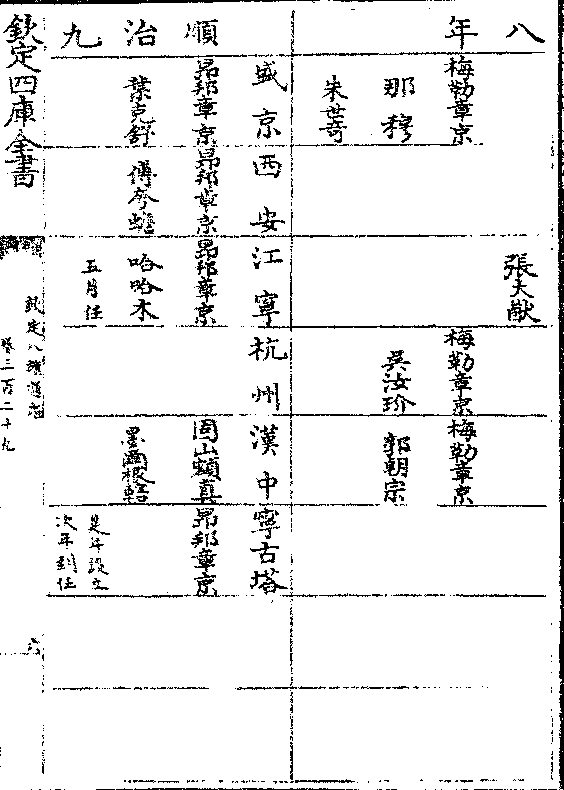 八年
梅勒章京
那穆
朱世奇
張大猷
梅勒章京
吳汝玠
梅勒章京
郭朝宗
順治九
盛京
昂邦章京
葉克舒
西安
昂邦章京
傅夸蟾
江寧
昂邦章京
哈哈木
五月任
杭州
漢中
固山額真
墨爾根轄
寧古塔
昂邦章京
是年設立
次年到任
欽定四庫全書
欽定八旗通志
卷三百二十九
六